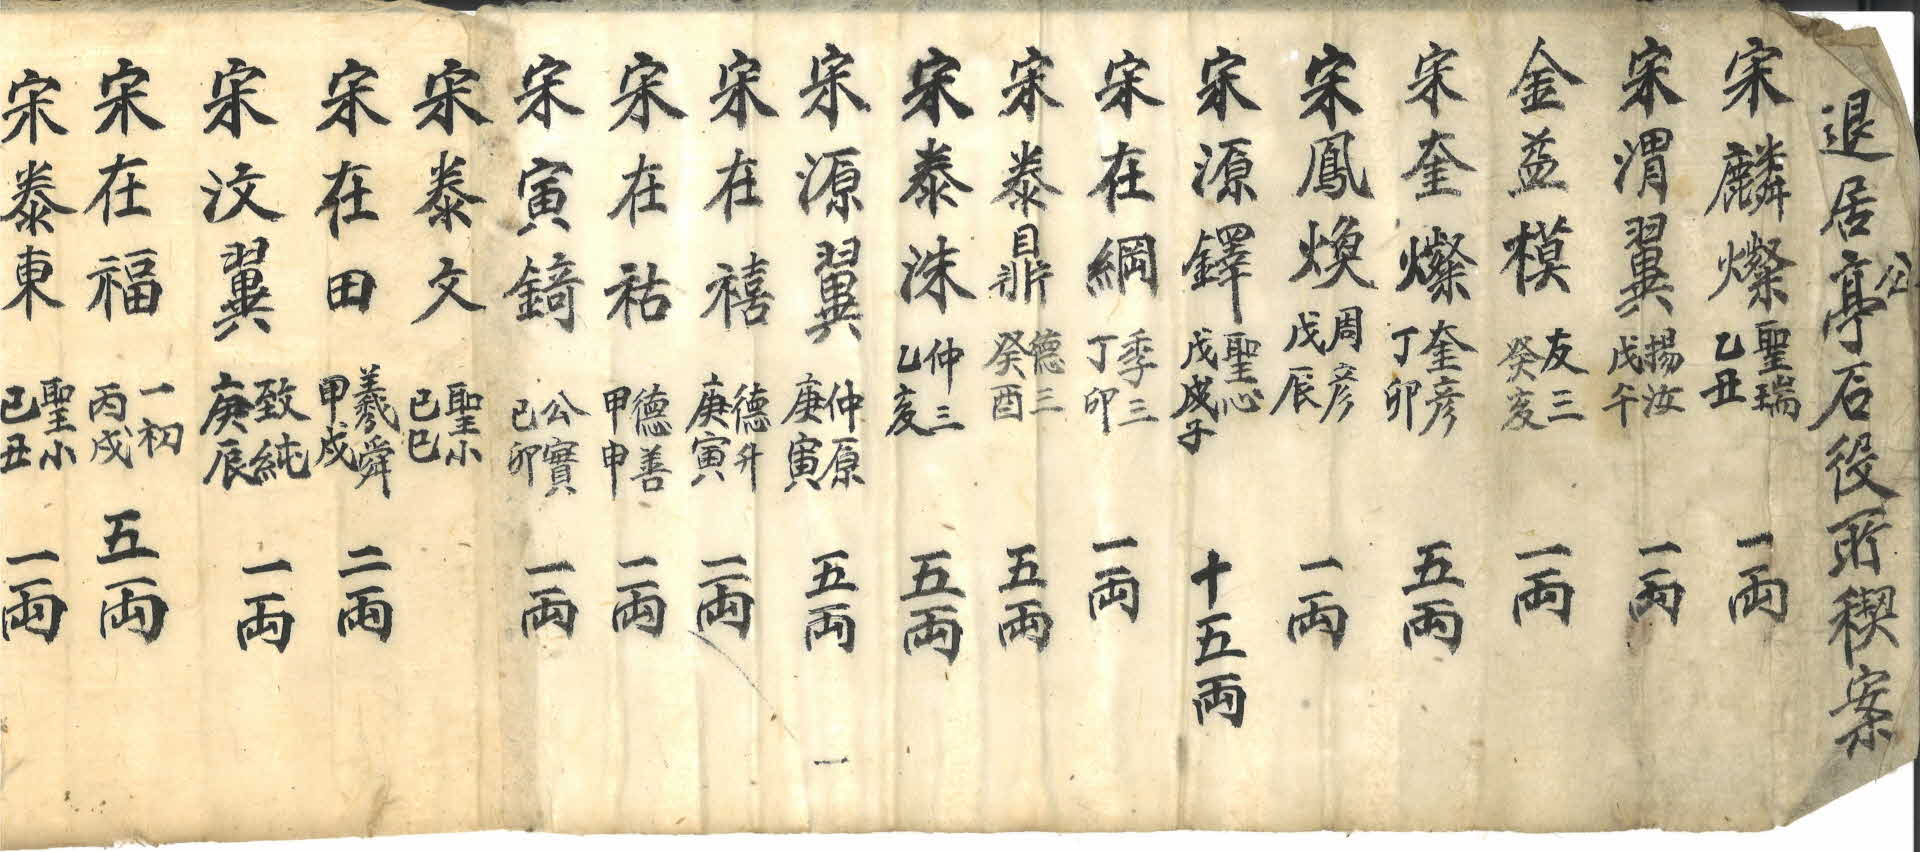 退居亭公石役所稧案
宋麟燦 聖瑞 乙丑 一両
宋渭翼 揚汝 戊午 一両
金益模 友三 癸亥 一両
宋奎燦 奎彦 丁卯 五両
宋鳳煥 周彦 戊辰 一両
宋源鐸 聖心 戊子 十五両
宋在綱 季三 丁卯 一両
宋泰鼎 德三 癸酉 五両
宋泰洙 仲三 乙亥 五両
宋源翼 仲原 庚寅 五両
宋在禧 德升 庚寅 二両
宋在祜 德善 甲申 二両
宋寅錡 公實 己卯 一両
宋泰文 聖小 己巳
宋在田 羲舜 甲戌 二両
宋汶翼 致純 庚辰 一両
宋在福 一初 丙戌 五両
宋泰東 聖小 己丑 一両